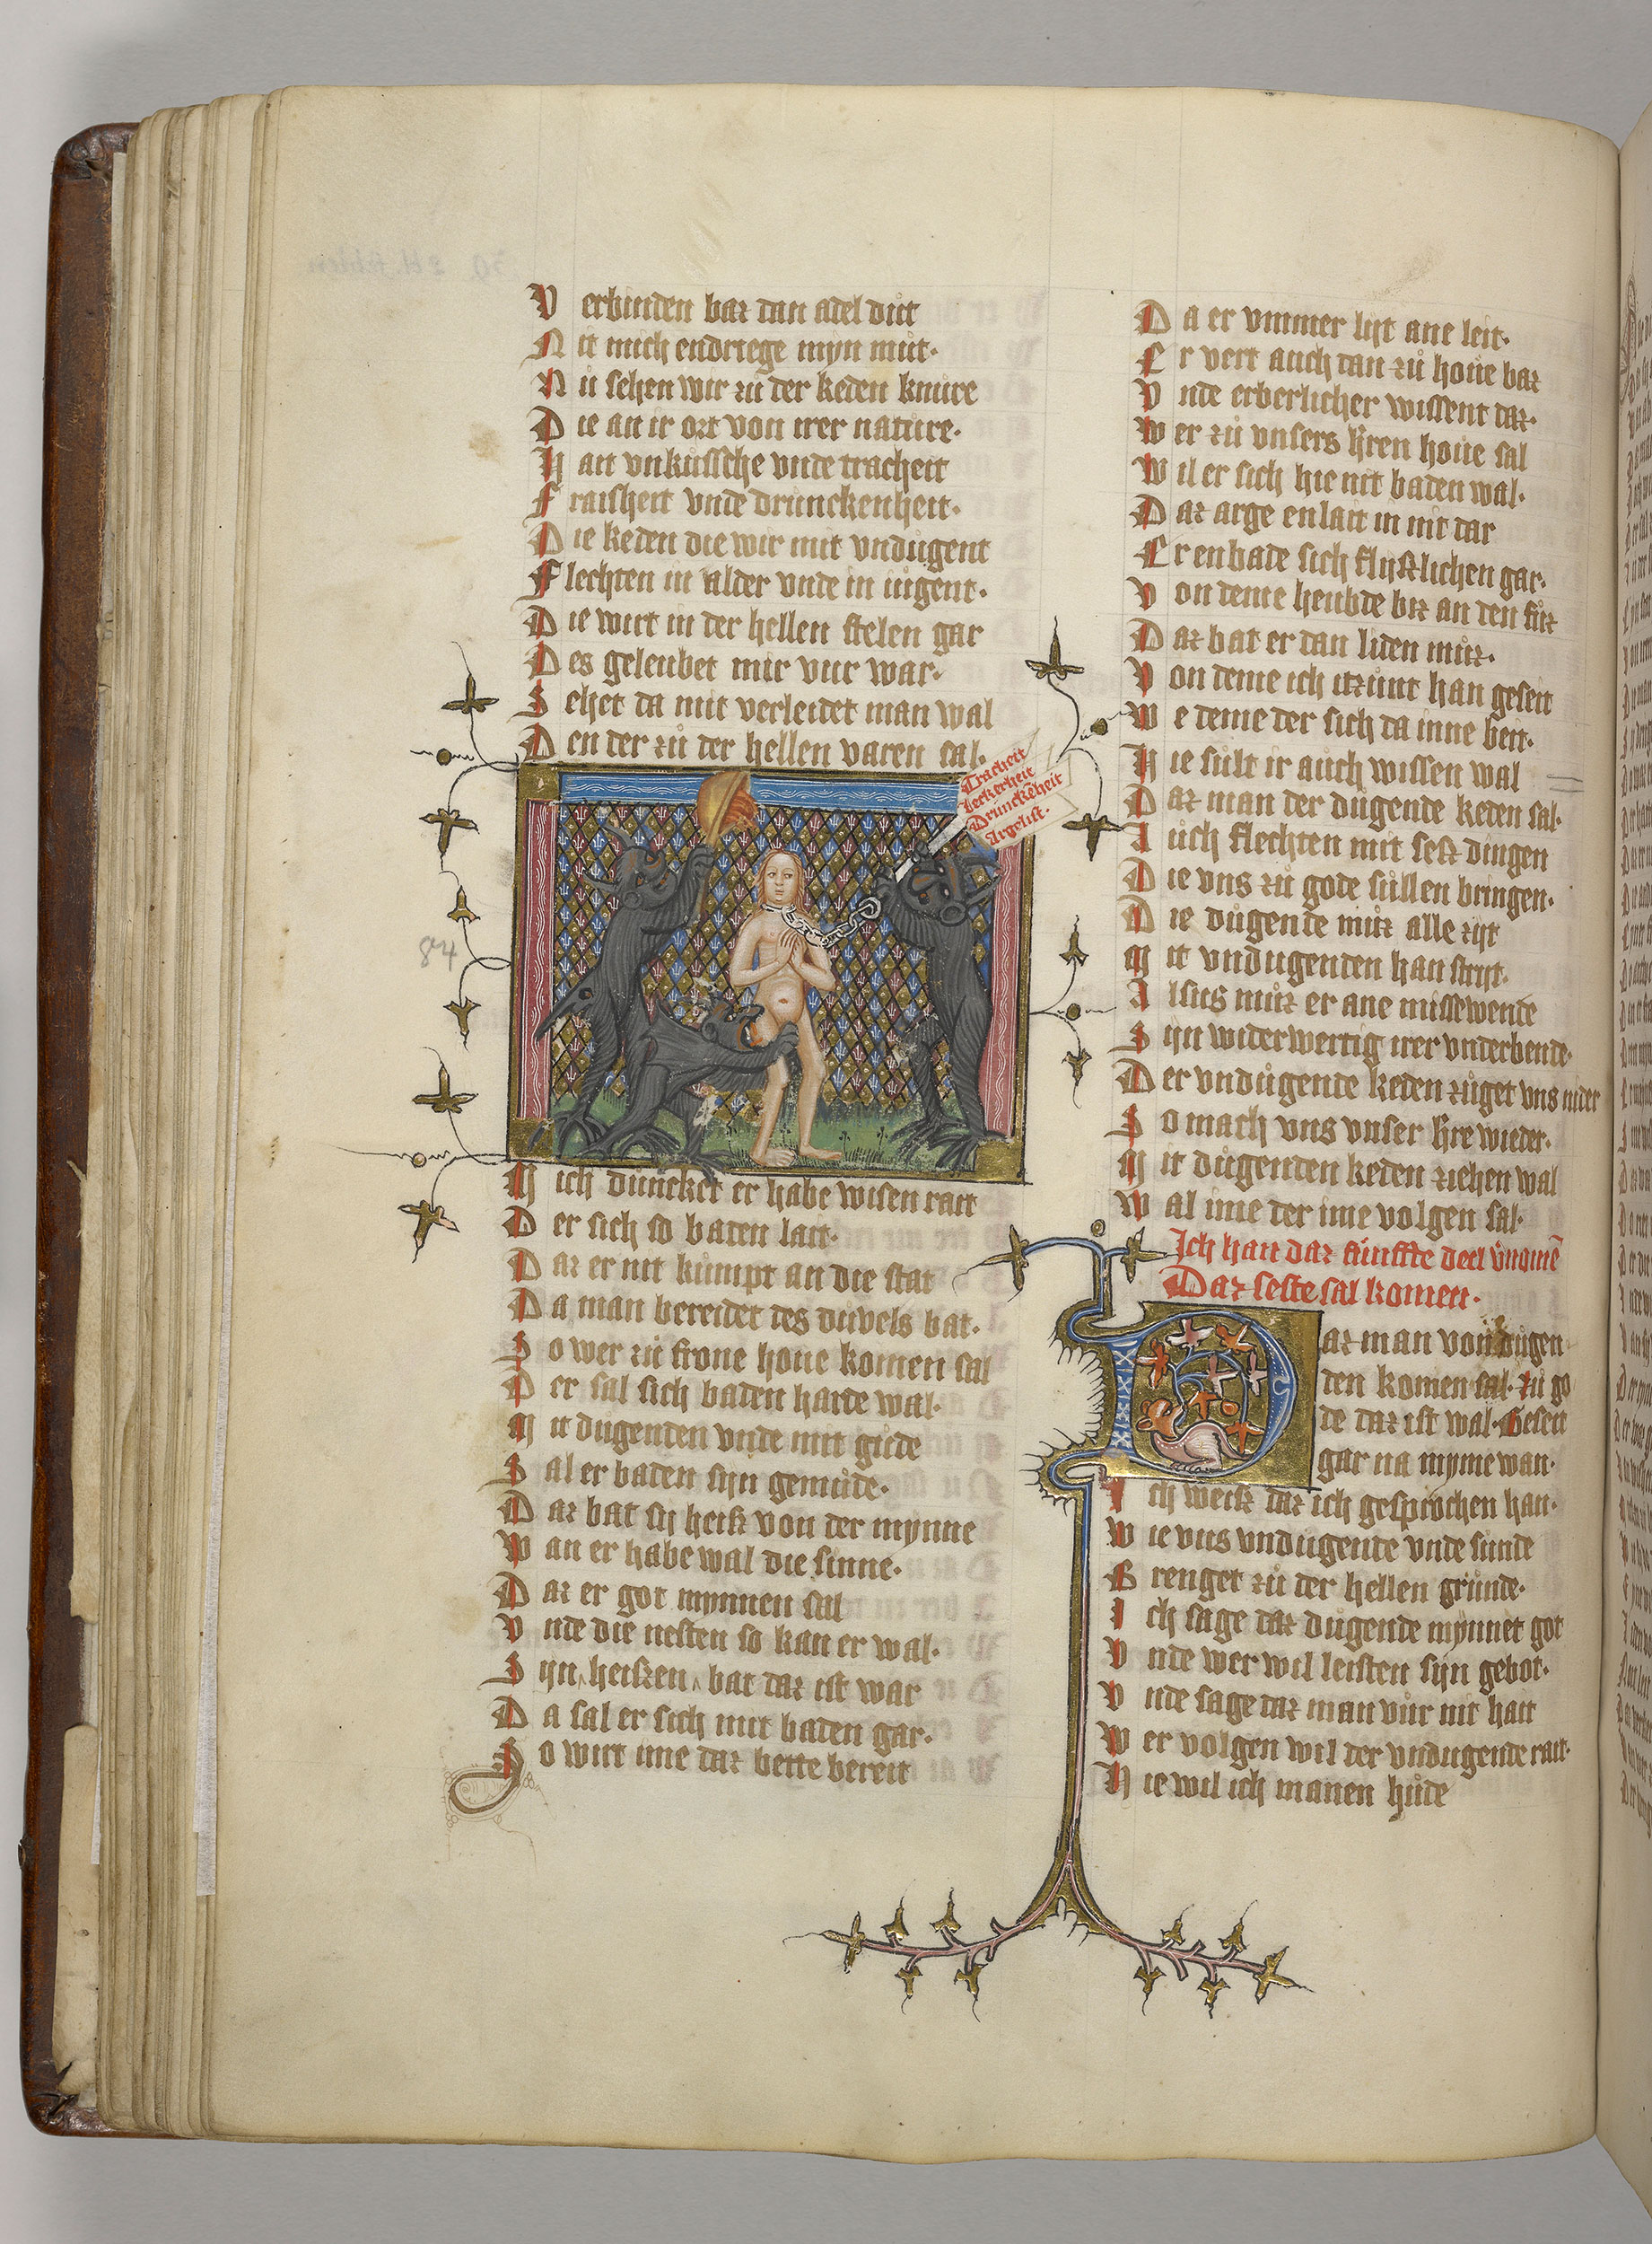 V erbunden baz dan adel dut
N it mich endriege myn mut·
N u sehen wir zu der keden knure
D ie an ir ort von irer nature·
H an vnkussche vnde tracheit
F raisheit vnde drunckenheit·
D ie keden die wir mit vndugent
F lechten in alder vnde in iugent·
D ie wirt in der hellen stelen gar
D es geleubet mir vur war·
S ehet da mit verleidet man wal
D en der zu der hellen varen sal·
Tracheit
Leckerheit
Drunckēheit
Argelist·
84
M ich duncket er habe wisen ratt
D er sich so baden latt·
D az er nit kumpt an die stat
D a man bereidet des duvels bat·
S o wer zu frone houe komen sal
D er sal sich baden harde wal·
M it dugenden vnde mit gude
S al er baden sijn gemude·
D az bat sij heiß von der mynne
W an er habe wal die sinne·
D az er got mynnen sal
V nde die nesten so kan er wal·
S ijn heißen bat daz ist war
D a sal er sich mit baden gar·
S o wirt ime daz bette bereit
D a er vmmer lijt ane leit·
E r vert auch dan zů houe baz
V nde erberlicher wissent daz·
W er zů vnsers hren houe sal
W il er sich hie nit baden wal·
D az arge enlatt in nit dar
E r enbade sich flijßlichen gar·
V on deme heubde biz an den fůz
D az bat er dan liden můz·
V on deme ich itzunt han geseit
W e deme der sich da inne beit·
H ie sult ir auch wissen wal
D az man der dugende keden sal·
A uch flechten mit seß dingen
D ie vns zů gode sullen bringen·
D ie dugende můz alle zijt
M it vndugenden han strijt·
A lsus můz er ane missewende
S ijn widerwertig irer vnderbende·
D er vndugende keden zůget vns nider
S o mach vns vnser hre wieder·
M it dugenden keden ziehen wal
W al ime der ime volgen sal·
Ich han daz funffte deil vůnomē
Daz seste sal komen·
D az man von dugen
den komen sal· zu go
de daz ist wal· Geseit
gar na myme wan·
I ch weiß daz ich gesprochen han·
W ie vns vndugende vnde sunde
B renget zů der hellen grunde·
I ch sage daz dugende mynnet got
V nde wer wil leisten sijn gebot·
V nde sage daz man vůr nit hatt
W er volgen wil der vndugende ratt·
H ie wil ich manen hude